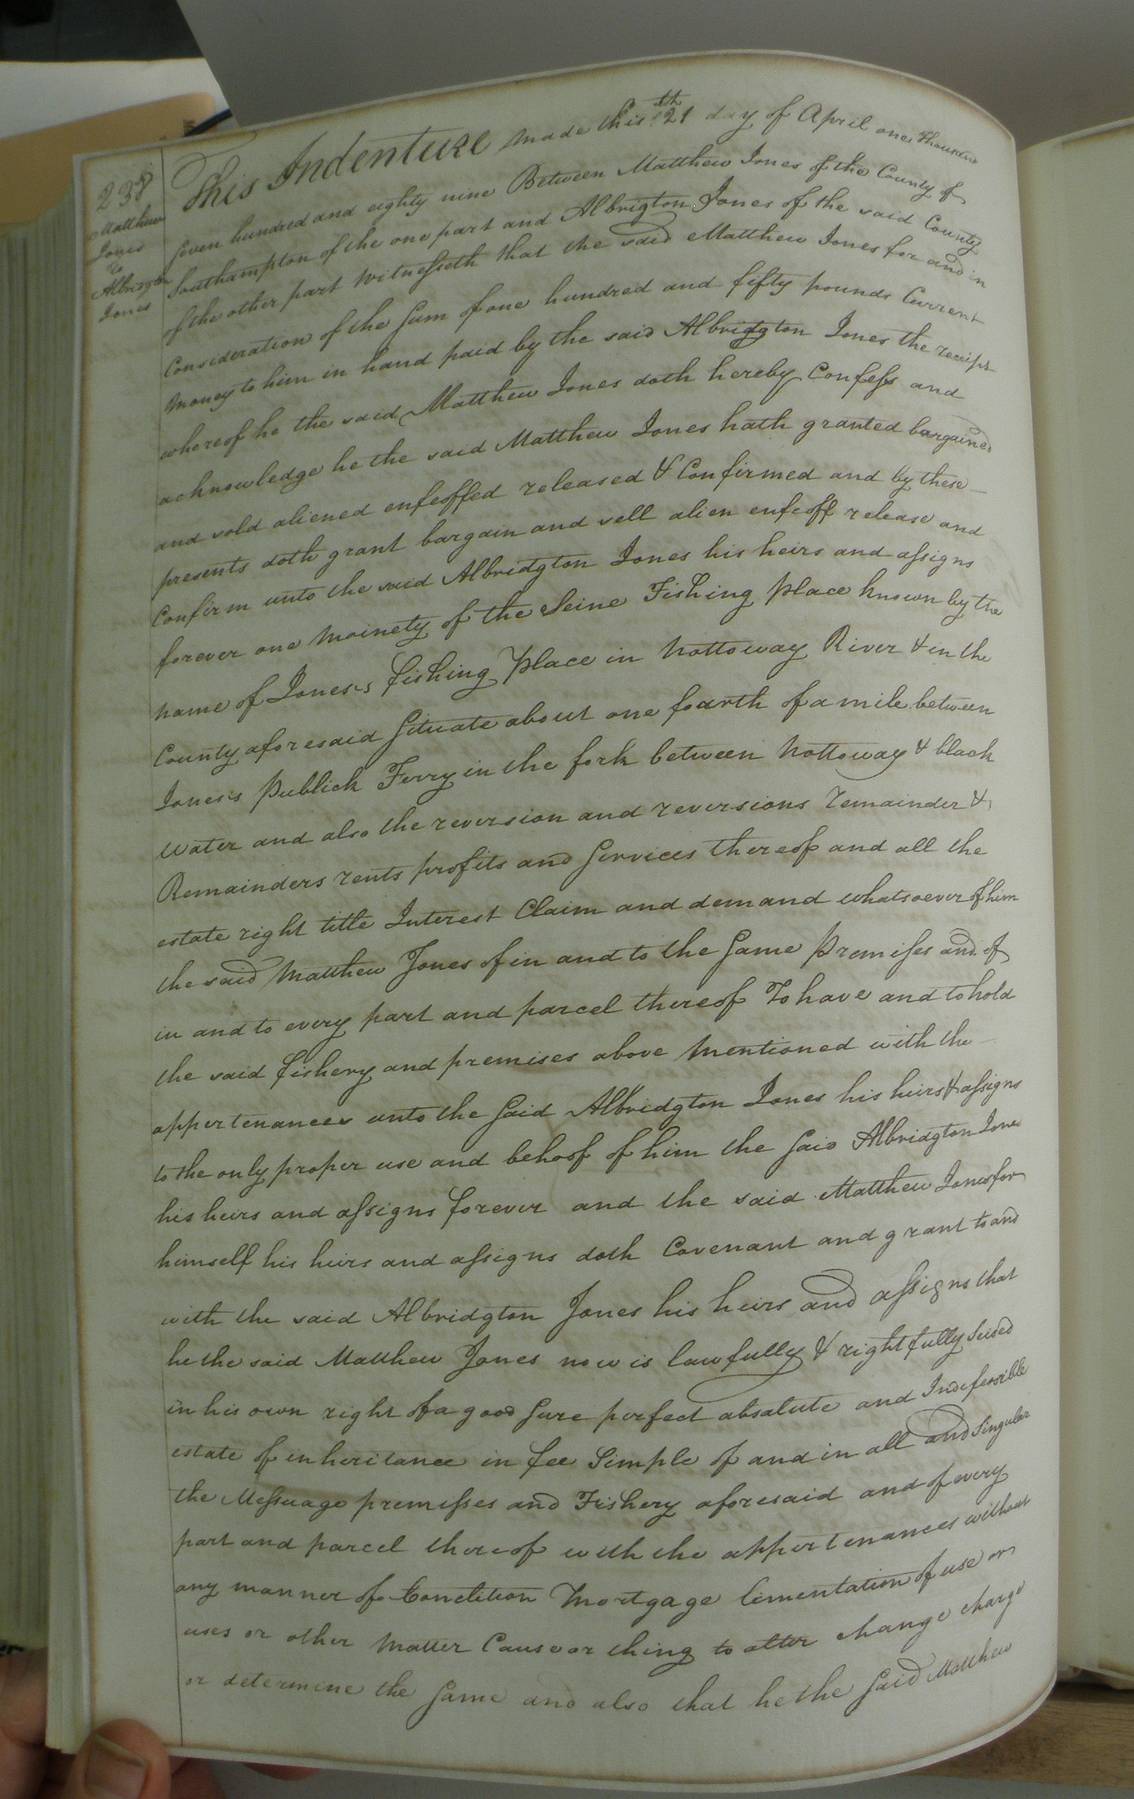 238
Matthew
Jones
to
Albrigton
Jones
This Indenture made this 21th day of April one Thousand
Seven hundred and eighty nine Between Matthew Jones of the County of
Southampton of the one part and Albrigton Jones of the said County
of the other part Witnesseth that the said Matthew Jones for and in
Consideration of the Sum of one hundred and fifty pounds Current
Money to him in hand paid by the said Albridgton Jones the receipt
whereof he the said Matthew Jones doth hereby Confess and
acknowledge he the said Matthew Jones hath granted bargained
and sold aliened enfeoffed released & Confirmed and by these
presents doth grant bargain and sell alien enfeoff release and
Confirm unto the said Albridgton Jones his heirs and assigns
forever one Moinety of the Seine Fishing Place known by the
name of Jones's fishing Place in Nottoway River & in the
County aforesaid Situate about one fourth of a mile between
Jones's Publick Ferry in the fork between Nottoway & black
Water and also the reversion and reversions remainder &
Remainders rents profits and Services thereof and all the
estate right title Interest Claim and demand whatsoever of him
the said Matthew Jones of in and to the Same Premises and of
in and to every part and parcel thereof To have and to hold
the said fishery and premises above Mentioned with the
appertenances unto the Said Albridgton Jones his heirs & assigns
to the only proper use and behoof of him the Said Albridgton Jones
his heirs and assigns forever and the said Matthew Jones for
himself his heirs and assigns doth Covenant and grant to and
with the said Albridgton Jones his heirs and assigns that
he the said Matthew Jones now is lawfully & rightfully Seised
in his own right of a good Sure perfect absolute and Indefeasible
estate of inheritance in fee Simple of and in all and Singular
the Messuage premisses and Fishery aforesaid and of every
part and parcel thereof with the appertenances without
any manner of Condition Mortgage limentation of use or
uses or other Matter Cause or thing to alter change charge
or determine the Same and also that he the Said Matthew